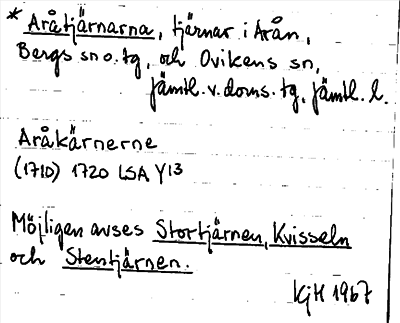 * Aråtjärnarna, tjärnar i Arån,
Bergs sn o. tg, och Ovikens sn,
Jämtl. v. doms. tg, Jämtl. l.
Aråkärnerne
(1710) 1720 LSA Y13
Möjligen avses Stortjärnen, Kvisseln
och Stentjärnen.
KjH 1967